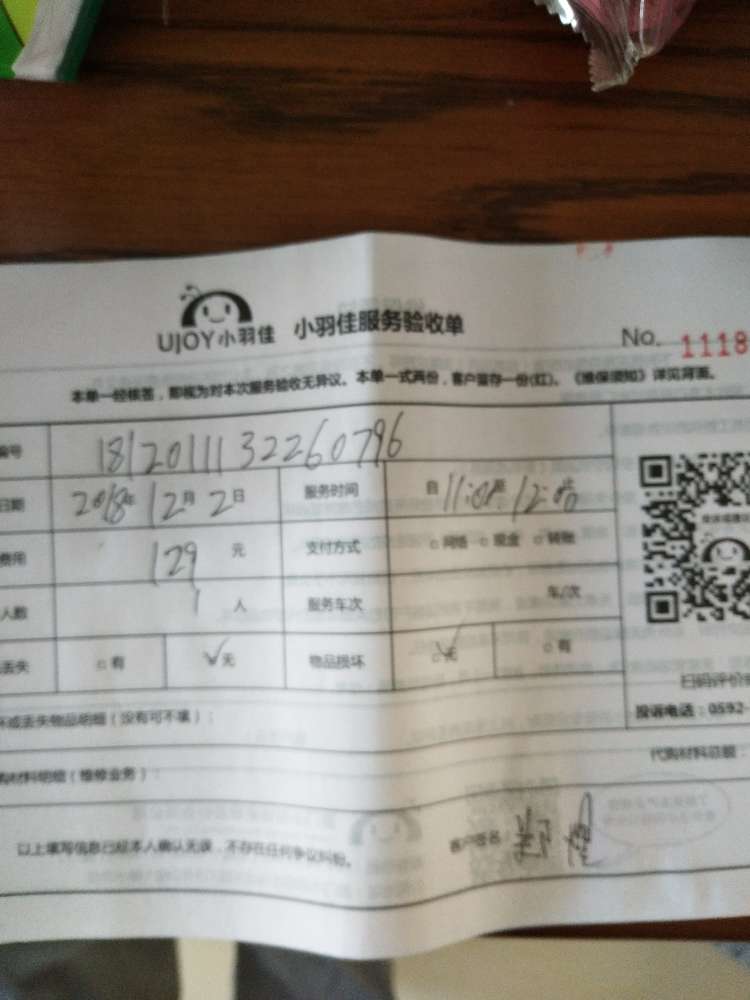 UJOY小羽佳 小羽佳服务验收单
No. 1118
本单一经核签，即视为对本次服务验收无异议。本单一式两份，客户留存一份(红)。《维保须知》详见背面。
编号 18120111132260796
日期 2018年 12月 2日 服务时间 自 11:00至 12:00止
费用 129 元 支付方式 □ 网络 □ 现金 □ 转账
人数 1 人 服务车次 车/次
丢失 □有 ☑无 物品损坏 ☑无 □有
扫码评价
坏或丢失物品明细（没有可不填）：
投诉电话：0592-
购材料明细（维修业务）：
代购材料总额：
以上填写信息已经本人确认无误，不存在任何争议纠纷。 客户签名：